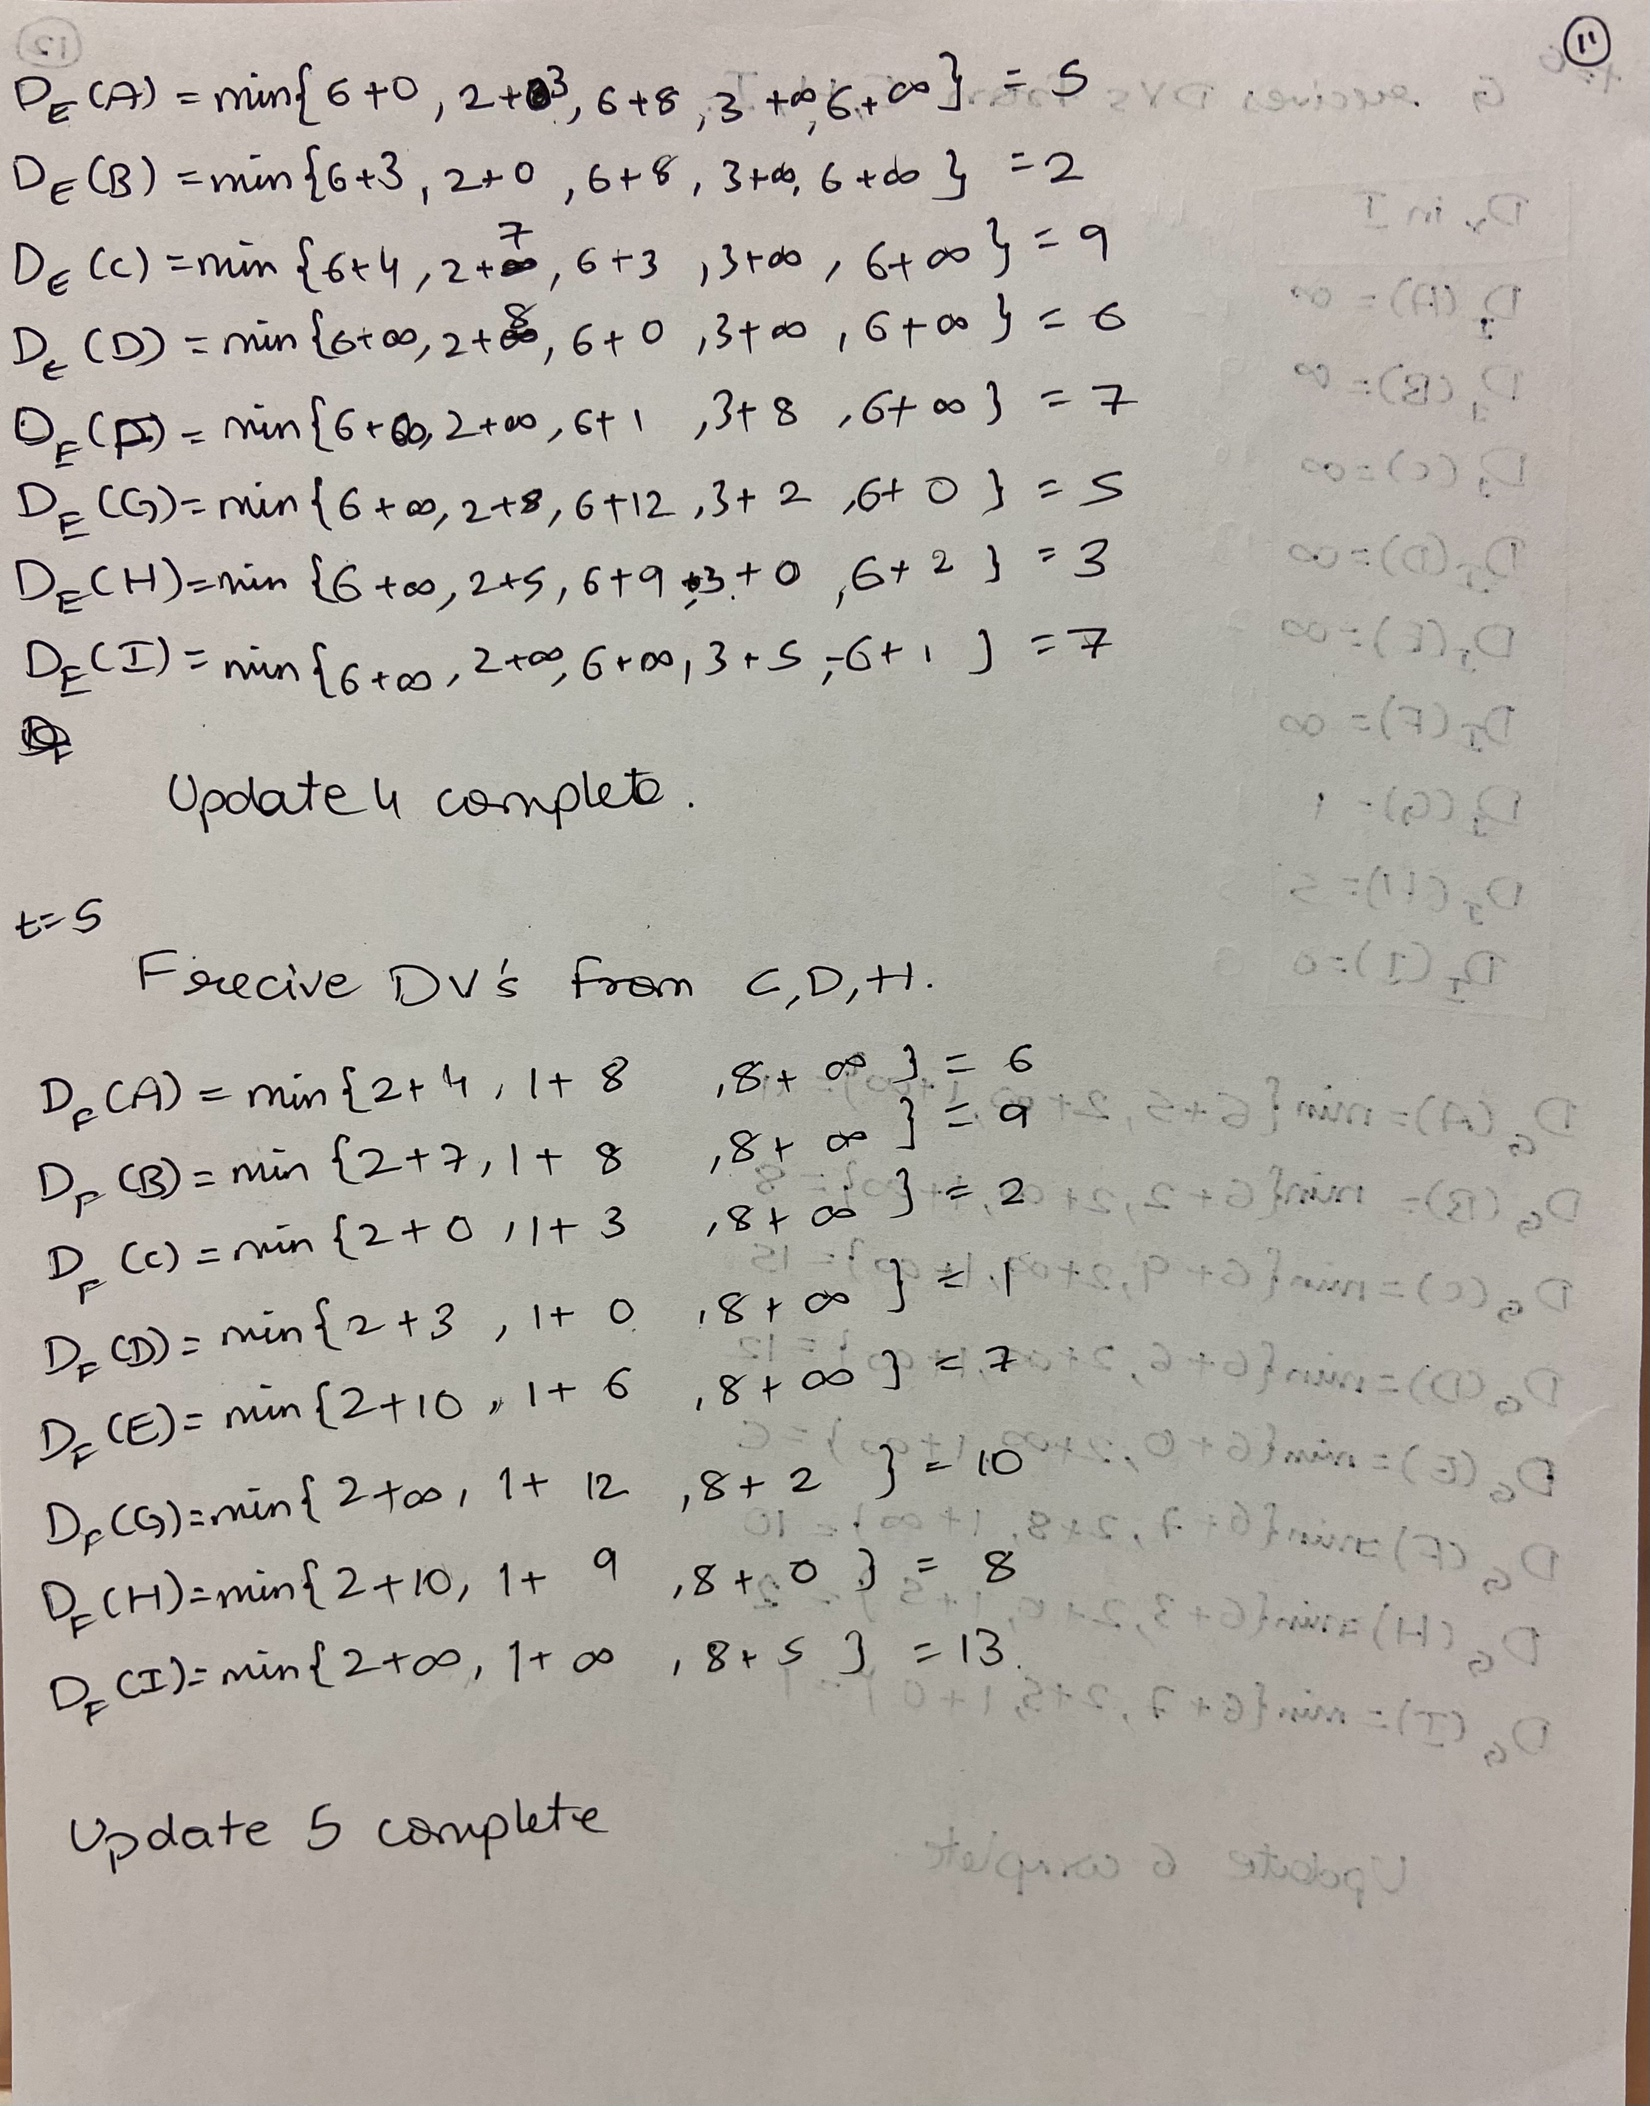 11
D_E(A) = min{ 6+0, 2+3, 6+8, 3+∞, 6+∞} = 5
D_E(B) = min{6+3, 2+0, 6+8, 3+∞, 6+∞} = 2
D_E(C) = min{6+4, 2+7, 6+3, 3+∞, 6+∞} = 9
D_E(D) = min{6+∞, 2+8, 6+0, 3+∞, 6+∞} = 6
D_E(F) = min{6+∞, 2+∞, 6+1, 3+8, 6+∞} = 7
D_E(G) = min{6+∞, 2+8, 6+12, 3+2, 6+0} = 5
D_E(H) = min{6+∞, 2+5, 6+9, 3+0, 6+2} = 3
D_E(I) = min{6+∞, 2+∞, 6+∞, 3+5, 6+1} = 7
Update 4 complete.
t=5
F recive DV's from C,D,H.
D_F(A) = min{2+4, 1+8, 8+∞} = 6
D_F(B) = min{2+7, 1+8, 8+∞} = 9
D_F(C) = min{2+0, 1+3, 8+∞} = 2
D_F(D) = min{2+3, 1+0, 8+∞} = 1
D_F(E) = min{2+10, 1+6, 8+∞} = 7
D_F(G) = min{2+∞, 1+12, 8+2} = 10
D_F(H) = min{2+10, 1+9, 8+0} = 8
D_F(I) = min{2+∞, 1+∞, 8+5} = 13.
Update 5 complete